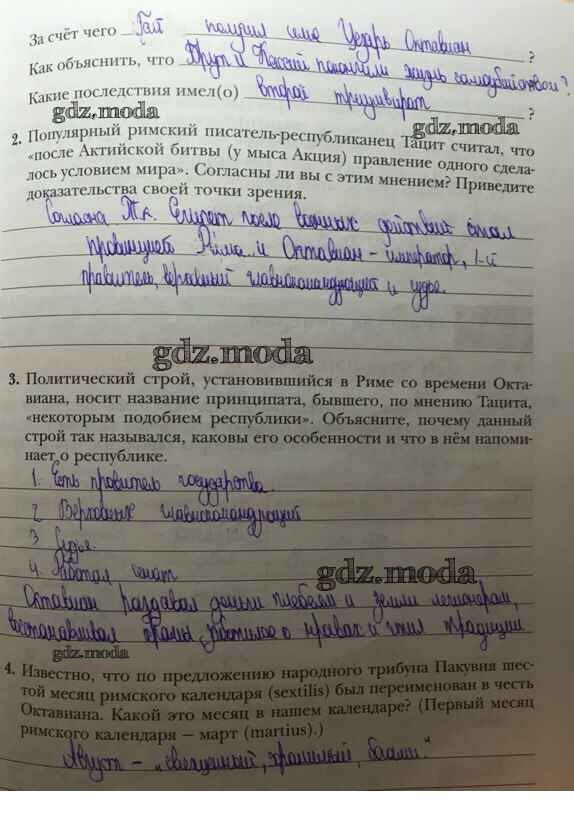 За счёт чего Гай получил имя Цезарь Октавиан ?
Как объяснить, что Брут и Кассий покончили жизнь самоубийством?
Какие последствия имел(о) второй триумвират ?
gdz.moda gdz.moda
2. Популярный римский писатель-республиканец Тацит считал, что
«после Актийской битвы (у мыса Акция) правление одного сдела-
лось условием мира». Согласны ли вы с этим мнением? Приведите
доказательства своей точки зрения.
Согласна т.к. Египет после военных действий стал
провинцией Рима и Октавиан - император, 1-й
правитель, верховный главнокомандующий и судья.
gdz.moda
3. Политический строй, установившийся в Риме со времени Окта-
виана, носит название принципата, бывшего, по мнению Тацита,
«некоторым подобием республики». Объясните, почему данный
строй так назывался, каковы его особенности и что в нём напоми-
нает о республике.
1. Есть правитель государства.
2 Верховных главнокомандующий
3 Судья.
4. Работал сенат
gdz.moda
Октавиан раздавал деньги плебеям и земли легионерам,
восстанавливал храмы, о нравах и чтил традиции
gdz.moda
4. Известно, что по предложению народного трибуна Пакувия шес-
той месяц римского календаря (sextilis) был переименован в честь
Октавиана. Какой это месяц в нашем календаре? (Первый месяц
римского календаря — март (martius).)
Август - "священный,